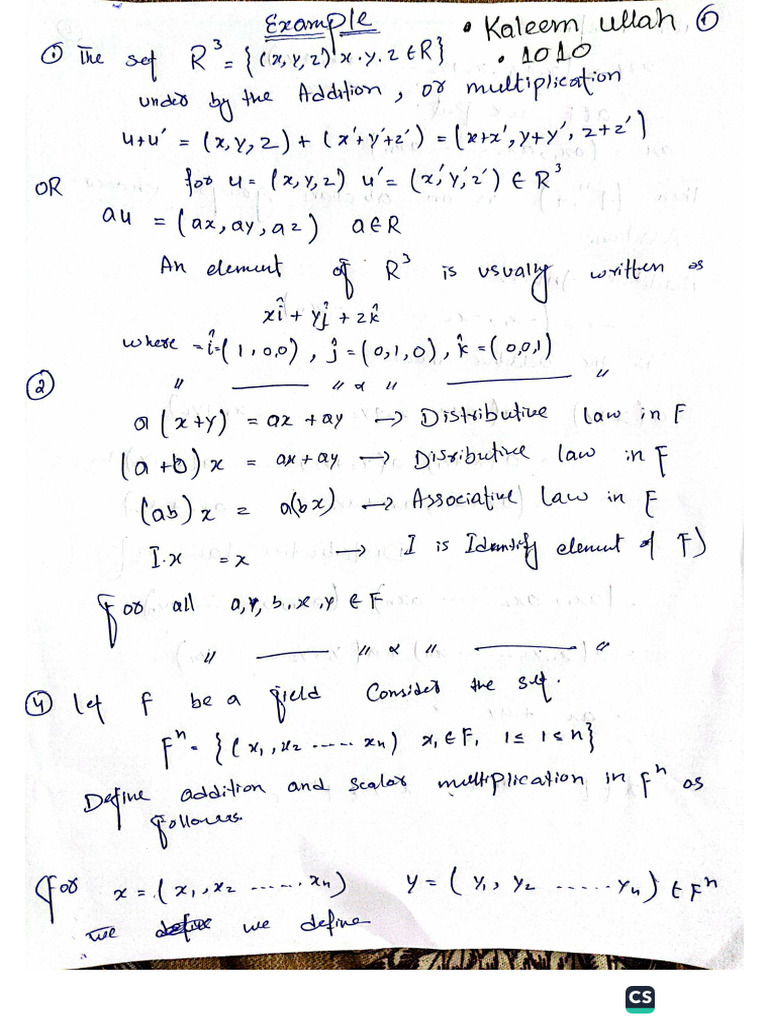 Example • Kaleem ullah ①
① The set R³ = {(x, y, z) x.y.z ∈ R} • 1010
under by the Addition, or multiplication
u+u' = (x, y, z) + (x'+y'+z') = (x+x', y+y', z+z')
OR for u = (x, y, z) u' = (x', y', z') ∈ R³
au = (ax, ay, az) a ∈ R
An element of R³ is usually written as
xî + yĵ + zk̂
where = î = (1, 0,0), ĵ = (0,1,0), k̂ = (0,0,1)
② " —— " ∝ " —— "
a(x+y) = ax + ay → Distributive law in F
(a+b)x = ax + ay → Disributive law in F
(ab)x = a(bx) → Associative law in F
I.x = x → I is Identify element of F)
for all a, y, b, x, y ∈ F
" —— " ∝ " —— "
④ let F be a field Consider the set.
Fⁿ = {(x₁, x₂ ...... xₙ) x₁ ∈ F, 1 ≤ 1 ≤ n}
Define addition and scalar multiplication in Fⁿ as
followes.
for x = (x₁, x₂ ....... xₙ) y = (y₁, y₂ ...... yₙ) ∈ Fⁿ
we define we define
CS